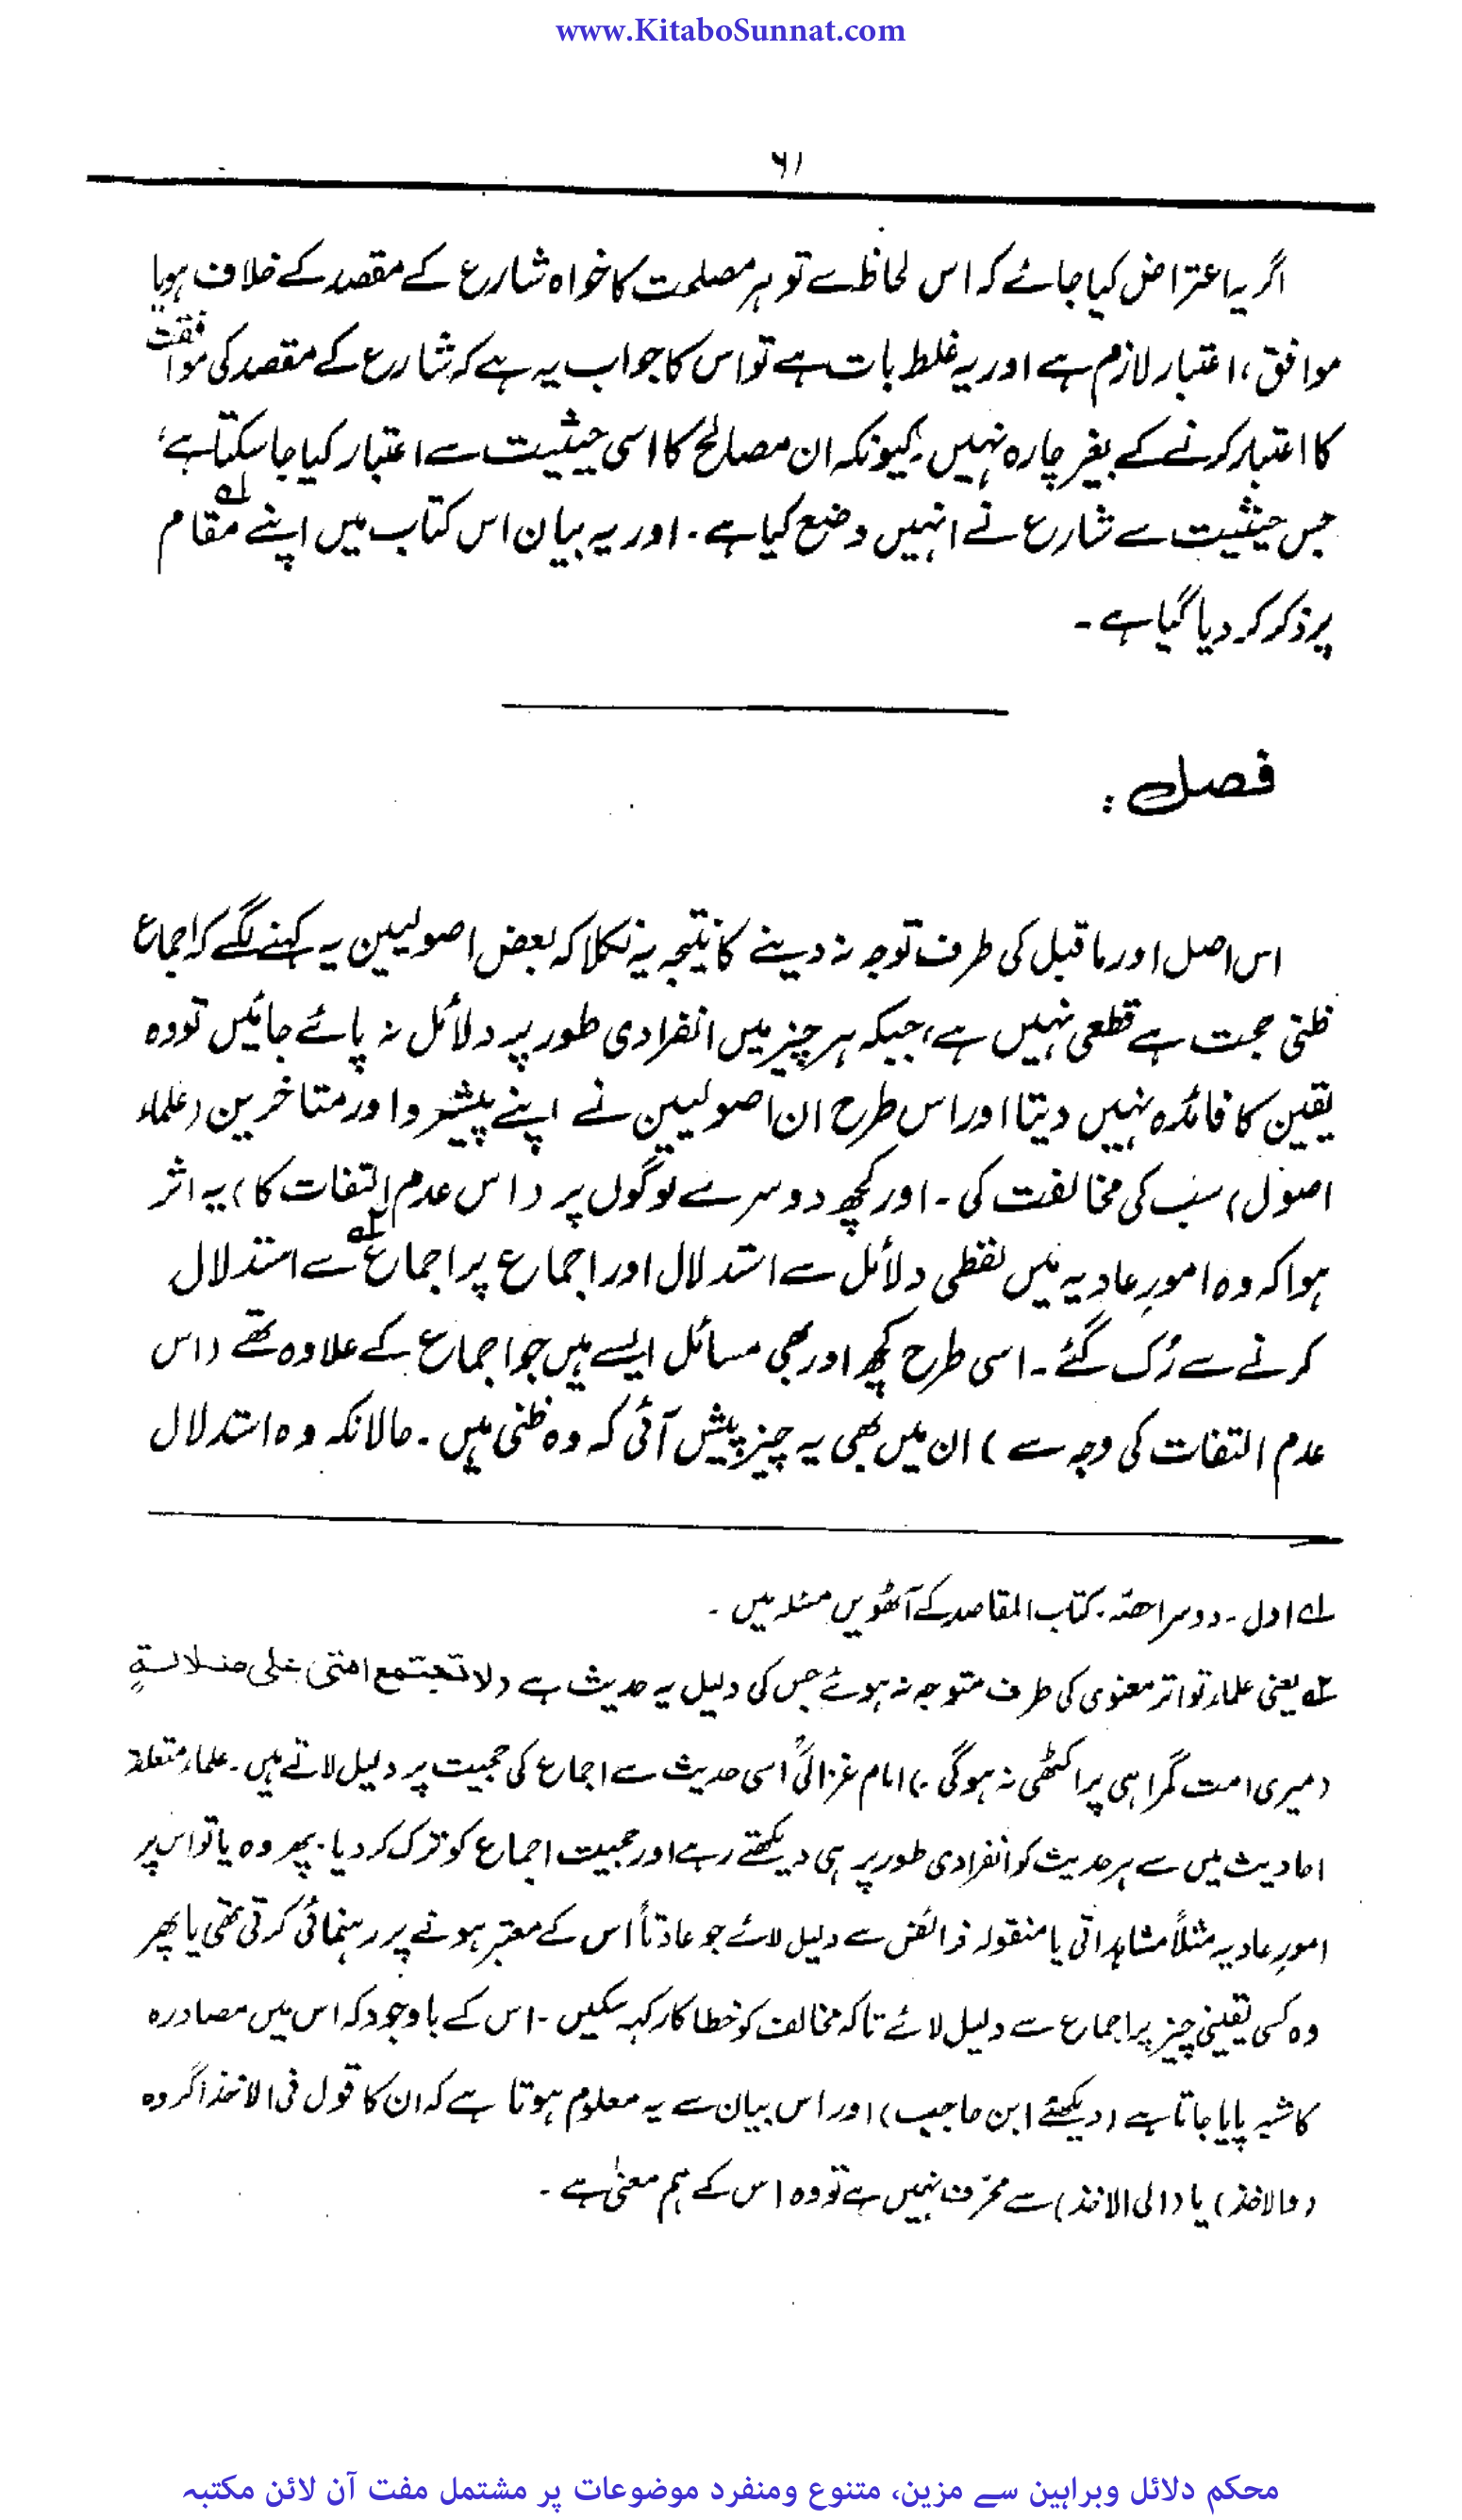 www.KitaboSunnat.com
۶۱
اگر یا عتراض کیا جائے کہ اس لحاظ سے تو ہر مصلحت کا خواہ شارع کے مقصد کے خلاف ہو یا
موافق، اعتبار لازم ہے اور یہ غلط بات ہے تو اس کا جواب یہ ہے کہ شارع کے مقصد کی موافقت
کا اعتبار کرنے کے بغیر چارہ نہیں، کیونکہ ان مصالح کا اسی حیثیت سے اعتبار کیا جا سکتا ہے،
جس حیثیت سے شارع نے انہیں وضع کیا ہے۔ اور یہ بیان اس کتاب میں اپنے مقام ؎۱
پر ذکر کر دیا گیا ہے۔
فصل :
اس اصل اور ما قبل کی طرف توجہ نہ دینے کا نتیجہ یہ نکلا کہ بعض اصولیین یہ کہنے لگے کہ اجماع
ظنی حجت ہے قطعی نہیں ہے، جبکہ ہر چیز میں انفرادی طور پر دلائل نہ پائے جائیں تو وہ
یقین کا فائدہ نہیں دیتا اور اس طرح ان اصولیین نے اپنے پیشرو اور متاخرین (علماء
اصول) سب کی مخالفت کی۔ اور کچھ دوسرے لوگوں پر (اس عدم التفات کا) یہ اثر
ہوا کہ وہ امورِ عادیہ میں لفظی دلائل سے استدلال اور اجماع پر اجماع ؎۲ سے استدلال
کرنے سے رُک گئے۔ اسی طرح کچھ اور بھی مسائل ایسے ہیں جو اجماع کے علاوہ تھے (اس
عدم التفات کی وجہ سے) ان میں بھی یہ چیز پیش آئی کہ وہ ظنی ہیں۔ حالانکہ وہ استدلال
؎۱ اول۔ دوسرا حصّہ۔ کتاب المقاصد کے آٹھویں مسئلہ میں۔
؎۲ یعنی علماء تواتر معنوی کی طرف متوجہ نہ ہوئے جس کی دلیل یہ حدیث ہے (لا تجتمع امتی علی ضلالۃٍ
(میری امت گمراہی پر اکٹھی نہ ہوگی۔) امام غزالیؒ اسی حدیث سے اجماع کی حجیت پر دلیل لاتے ہیں۔ علماء متعلقہ
احادیث میں سے ہر حدیث کو انفرادی طور پر ہی دیکھتے رہے اور حجیت اجماع کو ترک کر دیا۔ پھر وہ یا تو اس پر
امورِ عادیہ مثلاً مشاہداتی یا منقولہ قرائن سے دلیل لائے جو عادتاً اس کے معتبر ہونے پر رہنمائی کرتی تھی یا پھر
وہ کسی یقینی چیز پر اجماع سے دلیل لائے تاکہ مخالف کو خطا کار کہہ سکیں۔ اس کے باوجود کہ اس میں مصادرہ
کا شبہ پایا جاتا ہے (دیکھئے ابن حاجب) اور اس بیان سے یہ معلوم ہوتا ہے کہ ان کا قول فی الاخذ اگر وہ
(فالاخذ) یا (الی الاخذ) سے محرّف نہیں ہے تو وہ اس کے ہم معنیٰ ہے۔
محکم دلائل وبراہین سے مزین، متنوع ومنفرد موضوعات پر مشتمل مفت آن لائن مکتبہ